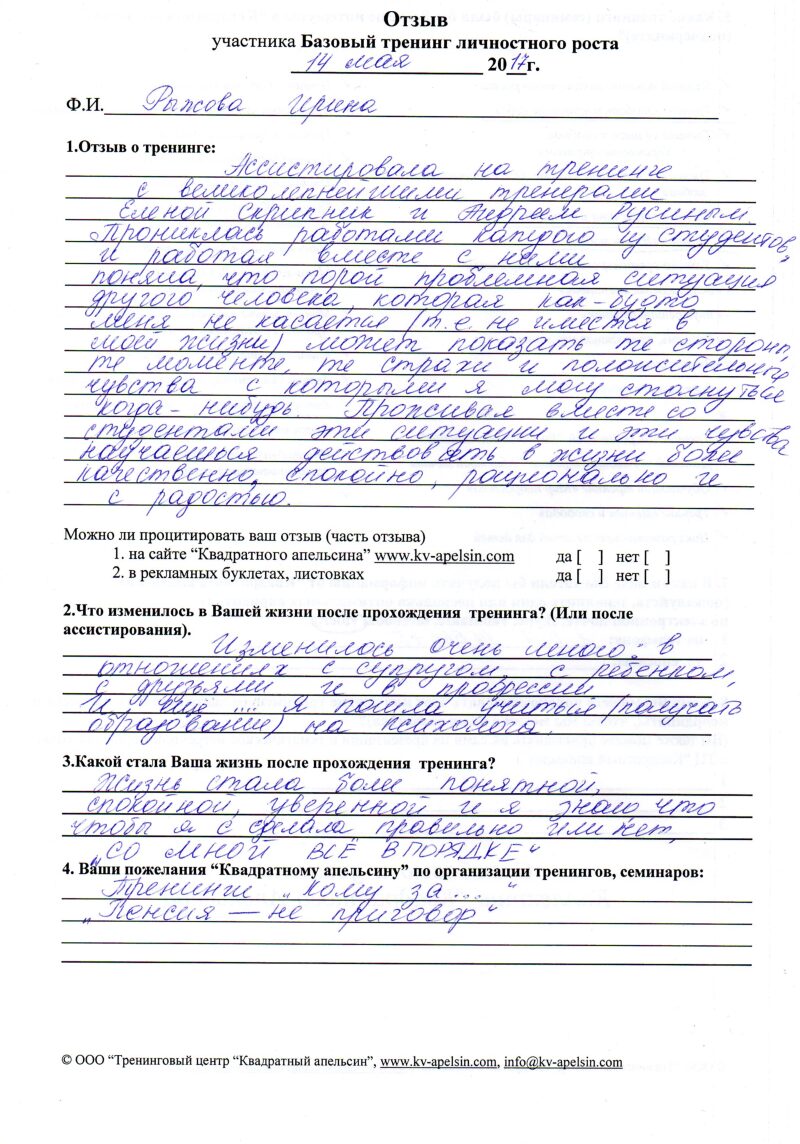 Отзыв
участника Базовый тренинг личностного роста
14 мая 2017г.
Ф.И. Рыжова Ирина
1.Отзыв о тренинге:
Ассистировала на тренинге
с великолепнейшими тренерами
Еленой Скрипник и Андреем Русиным.
Прониклась работами каждого из студентов,
и работая вместе с ними
поняла, что порой проблемная ситуация
другого человека, которая как-будто
меня не касается (т.е. не имеется в
моей жизни) может показать те стороны,
те моменте, те страхи и положительные
чувства с которыми я могу столкнуться
когда-нибудь. Проживая вместе со
студентами эти ситуации и эти чувства
научаешься действовать в жизни более
качественно, спокойно, рационально и
с радостью.
Можно ли процитировать ваш отзыв (часть отзыва)
1. на сайте “Квадратного апельсина” www.kv-apelsin.com да [ ] нет [ ]
2. в рекламных буклетах, листовках да [ ] нет [ ]
2.Что изменилось в Вашей жизни после прохождения тренинга? (Или после
ассистирования).
Изменилось очень много: в
отношениях с супругом, с ребенком,
с друзьями и в профессии.
И еще ... я пошла учиться (получать
образование) на психолога.
3.Какой стала Ваша жизнь после прохождения тренинга?
Жизнь стала более понятной,
спокойной, уверенной и я знаю, что
чтобы я с сделала правильно или нет,
„СО МНОЙ ВСЁ В ПОРЯДКЕ“
4. Ваши пожелания “Квадратному апельсину” по организации тренингов, семинаров:
Тренинги „кому за ... “
„Пенсия — не приговор“
© ООО “Тренинговый центр “Квадратный апельсин”, www.kv-apelsin.com, info@kv-apelsin.com